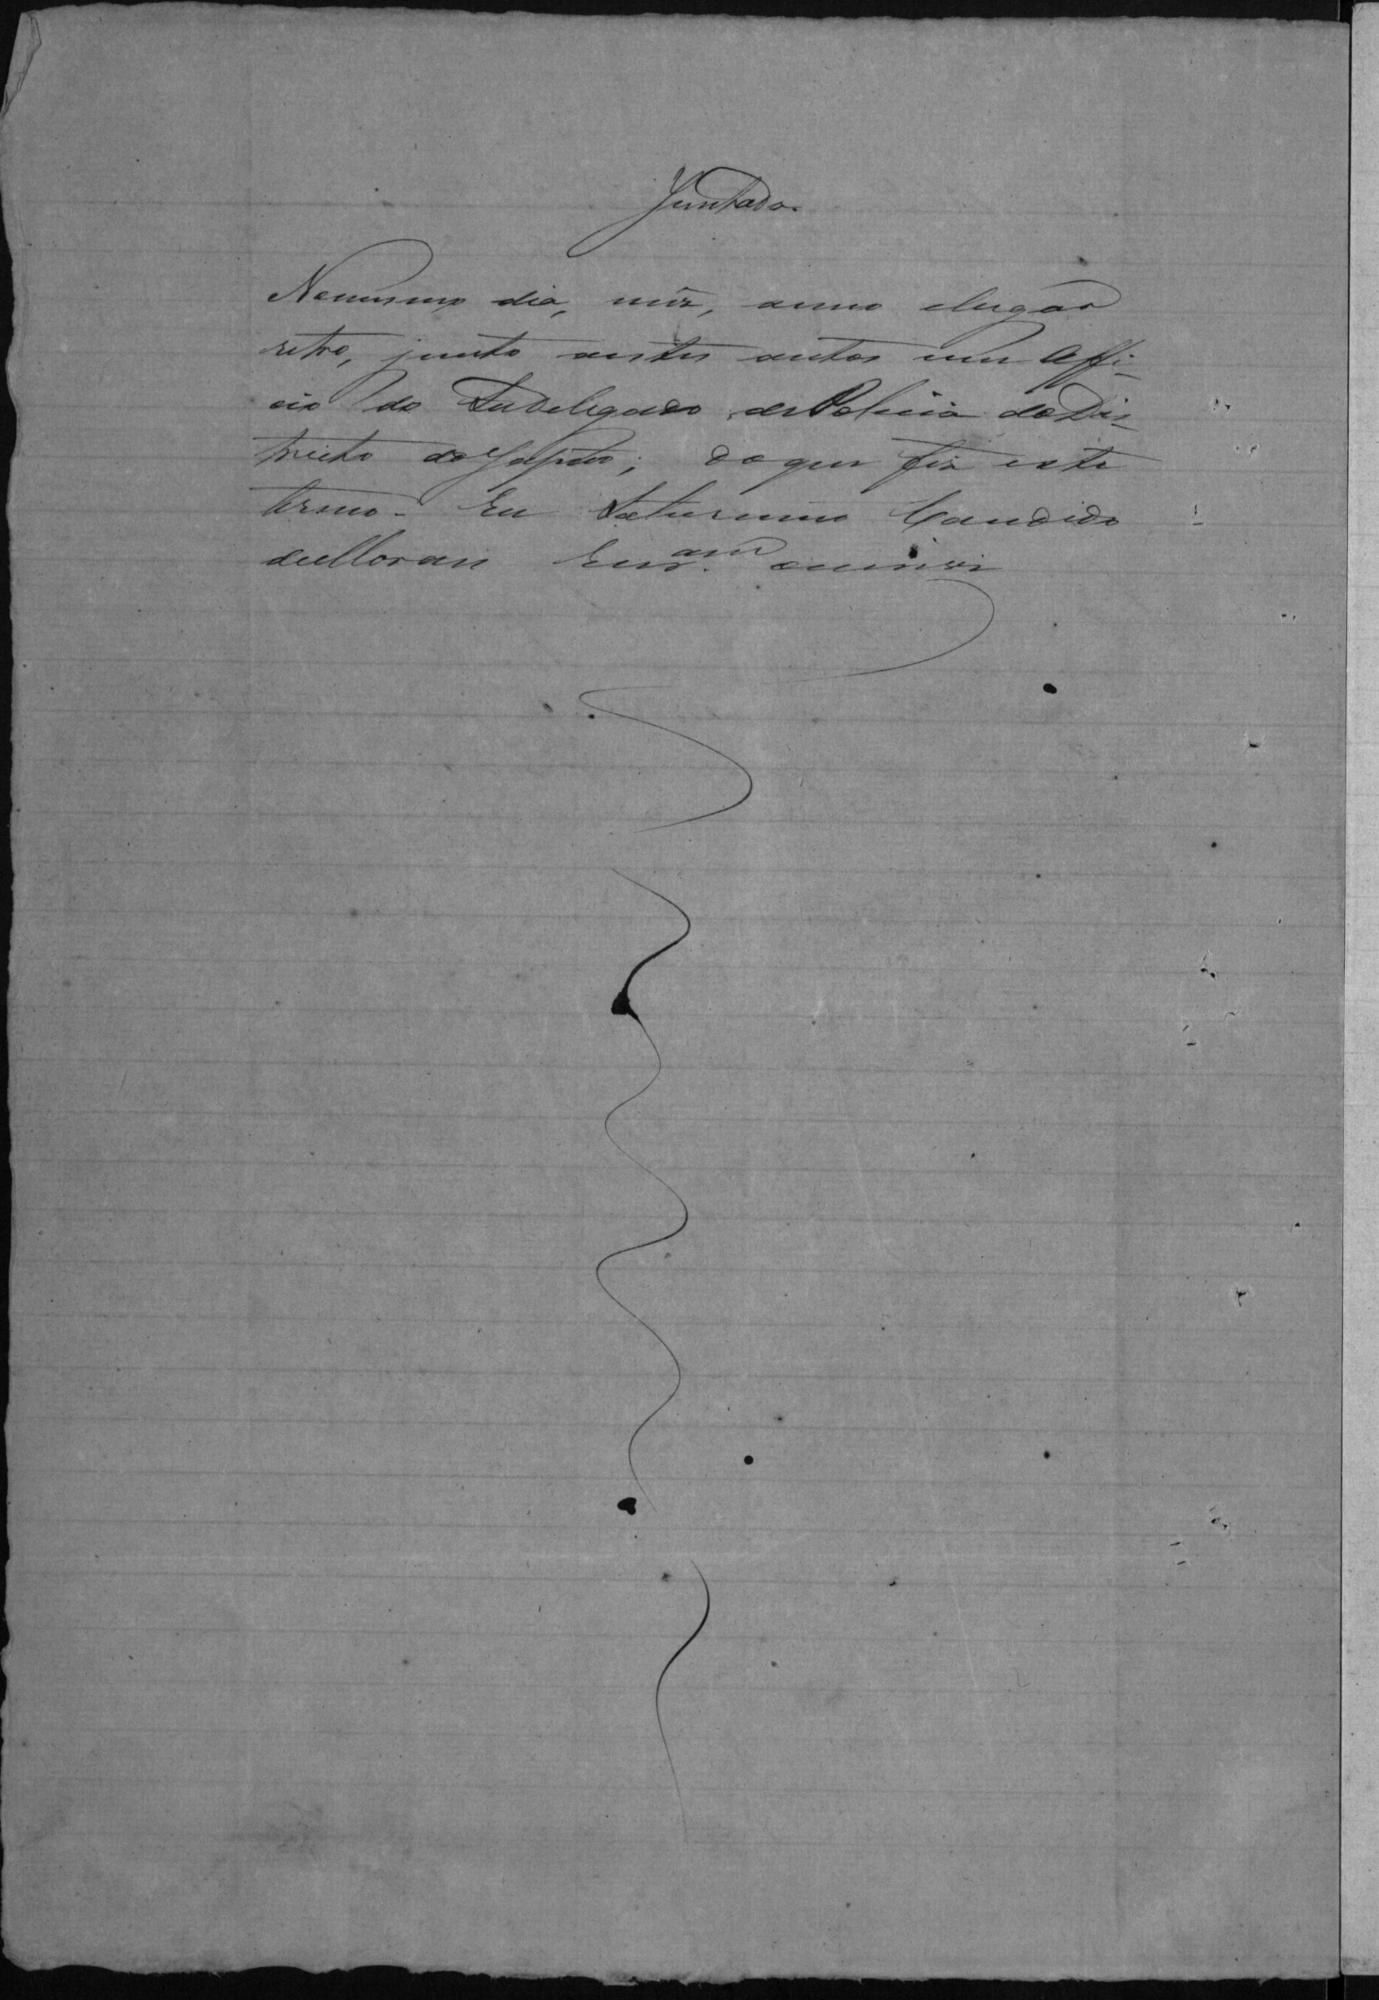 Juntada.
No mesmo dia, mêz, anno e lugar
retro, junto a estes autos um offi-
cio do Subdelegado de Policia do Dis-
tricto do; do que fiz este
termo. Eu Saturnino Candido
de Moraes Escr.am o escrevi